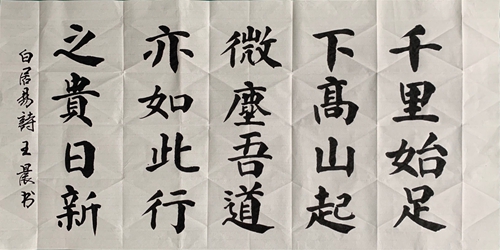 千里始足
下高山起
微塵吾道
亦如此行
之貴日新
白居易詩王晨书